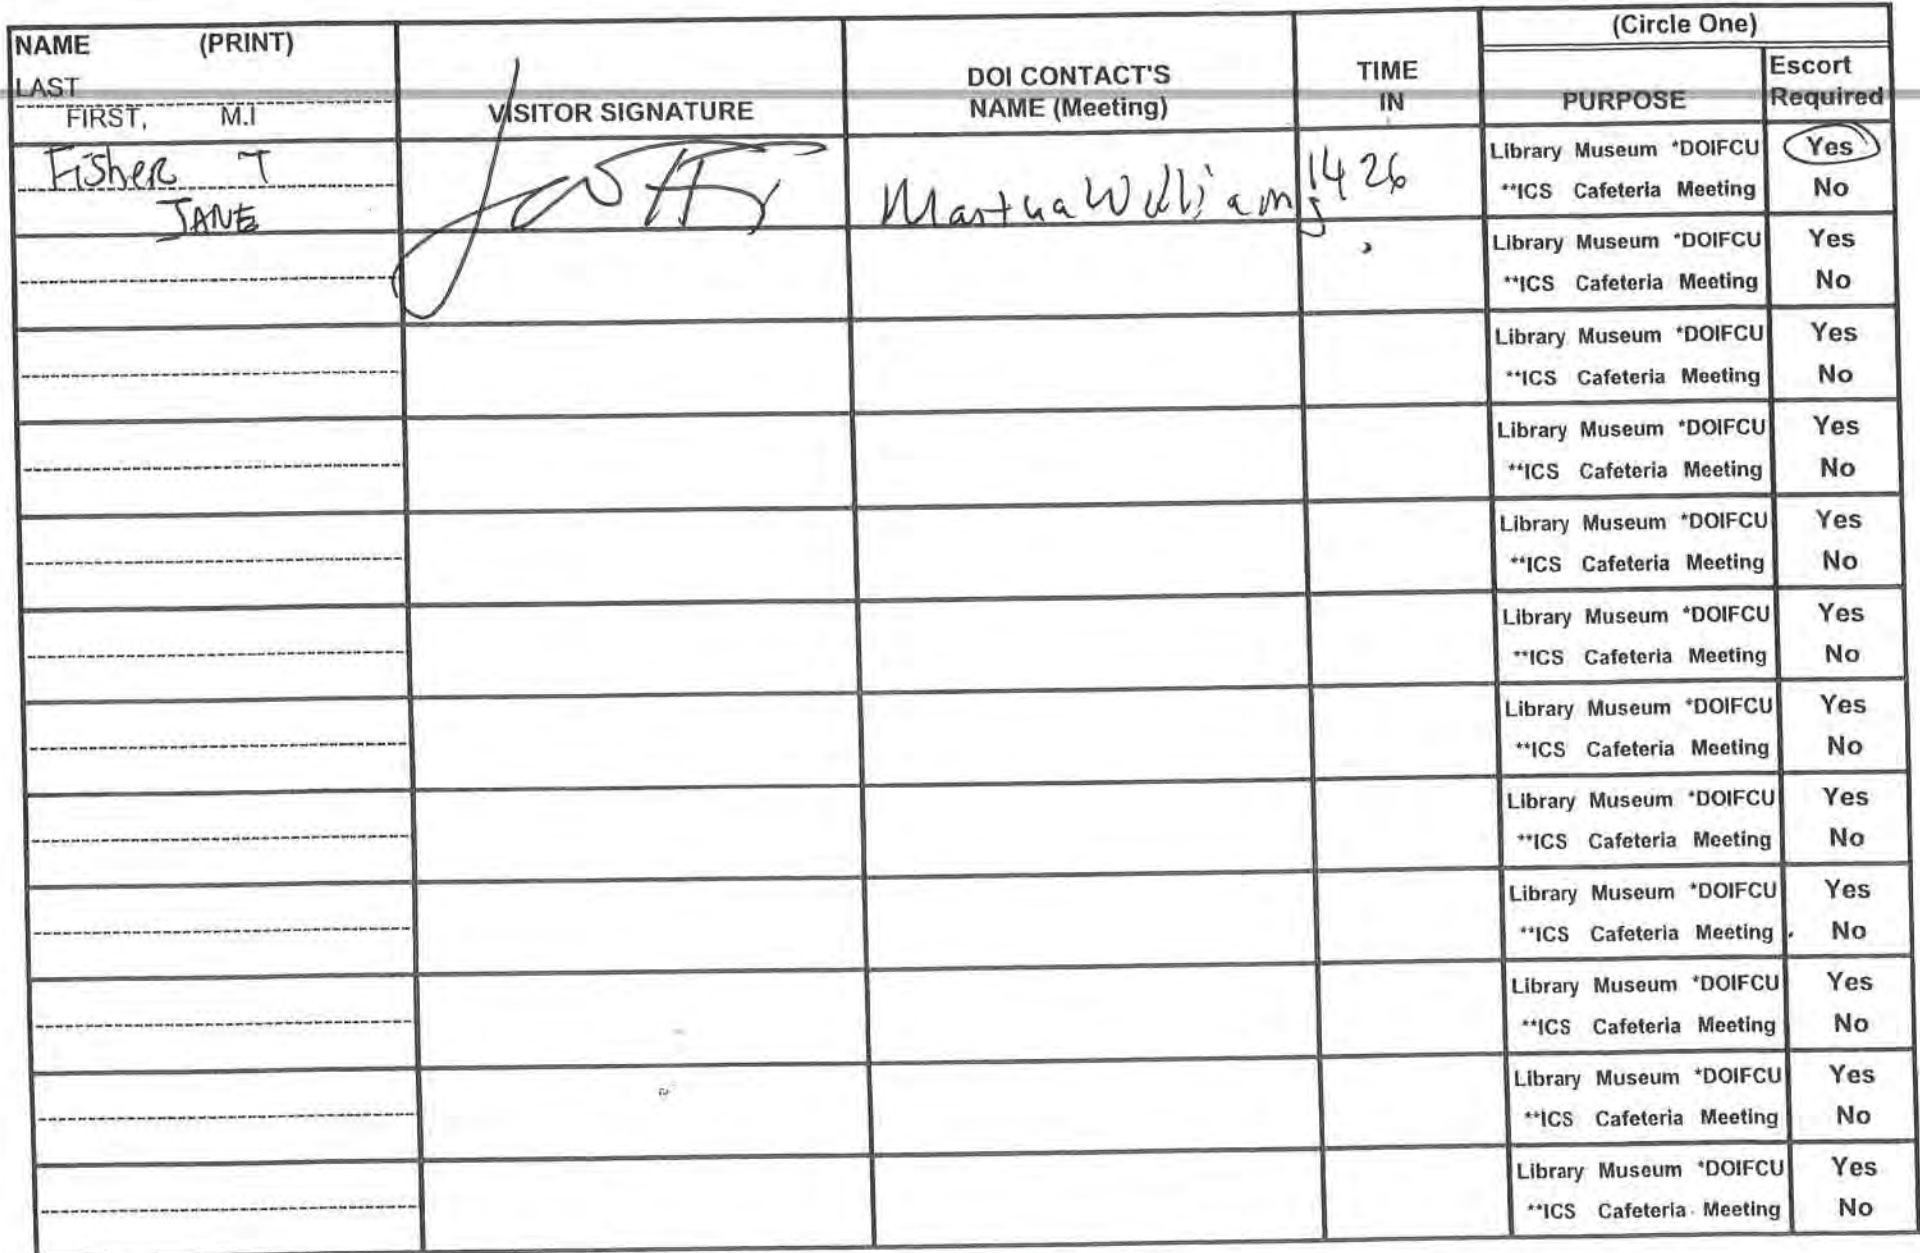 NAME (PRINT)
LAST
FIRST, M.I
VISITOR SIGNATURE
DOI CONTACT'S
NAME (Meeting)
TIME
IN
(Circle One)
PURPOSE
Escort
Required
Fisher T
JANE
Martha Williams
1426
Library Museum *DOIFCU Yes
**ICS Cafeteria Meeting No
Library Museum *DOIFCU Yes
**ICS Cafeteria Meeting No
Library Museum *DOIFCU Yes
**ICS Cafeteria Meeting No
Library Museum *DOIFCU Yes
**ICS Cafeteria Meeting No
Library Museum *DOIFCU Yes
**ICS Cafeteria Meeting No
Library Museum *DOIFCU Yes
**ICS Cafeteria Meeting No
Library Museum *DOIFCU Yes
**ICS Cafeteria Meeting No
Library Museum *DOIFCU Yes
**ICS Cafeteria Meeting No
Library Museum *DOIFCU Yes
**ICS Cafeteria Meeting No
Library Museum *DOIFCU Yes
**ICS Cafeteria Meeting No
Library Museum *DOIFCU Yes
**ICS Cafeteria Meeting No
Library Museum *DOIFCU Yes
**ICS Cafeteria Meeting No